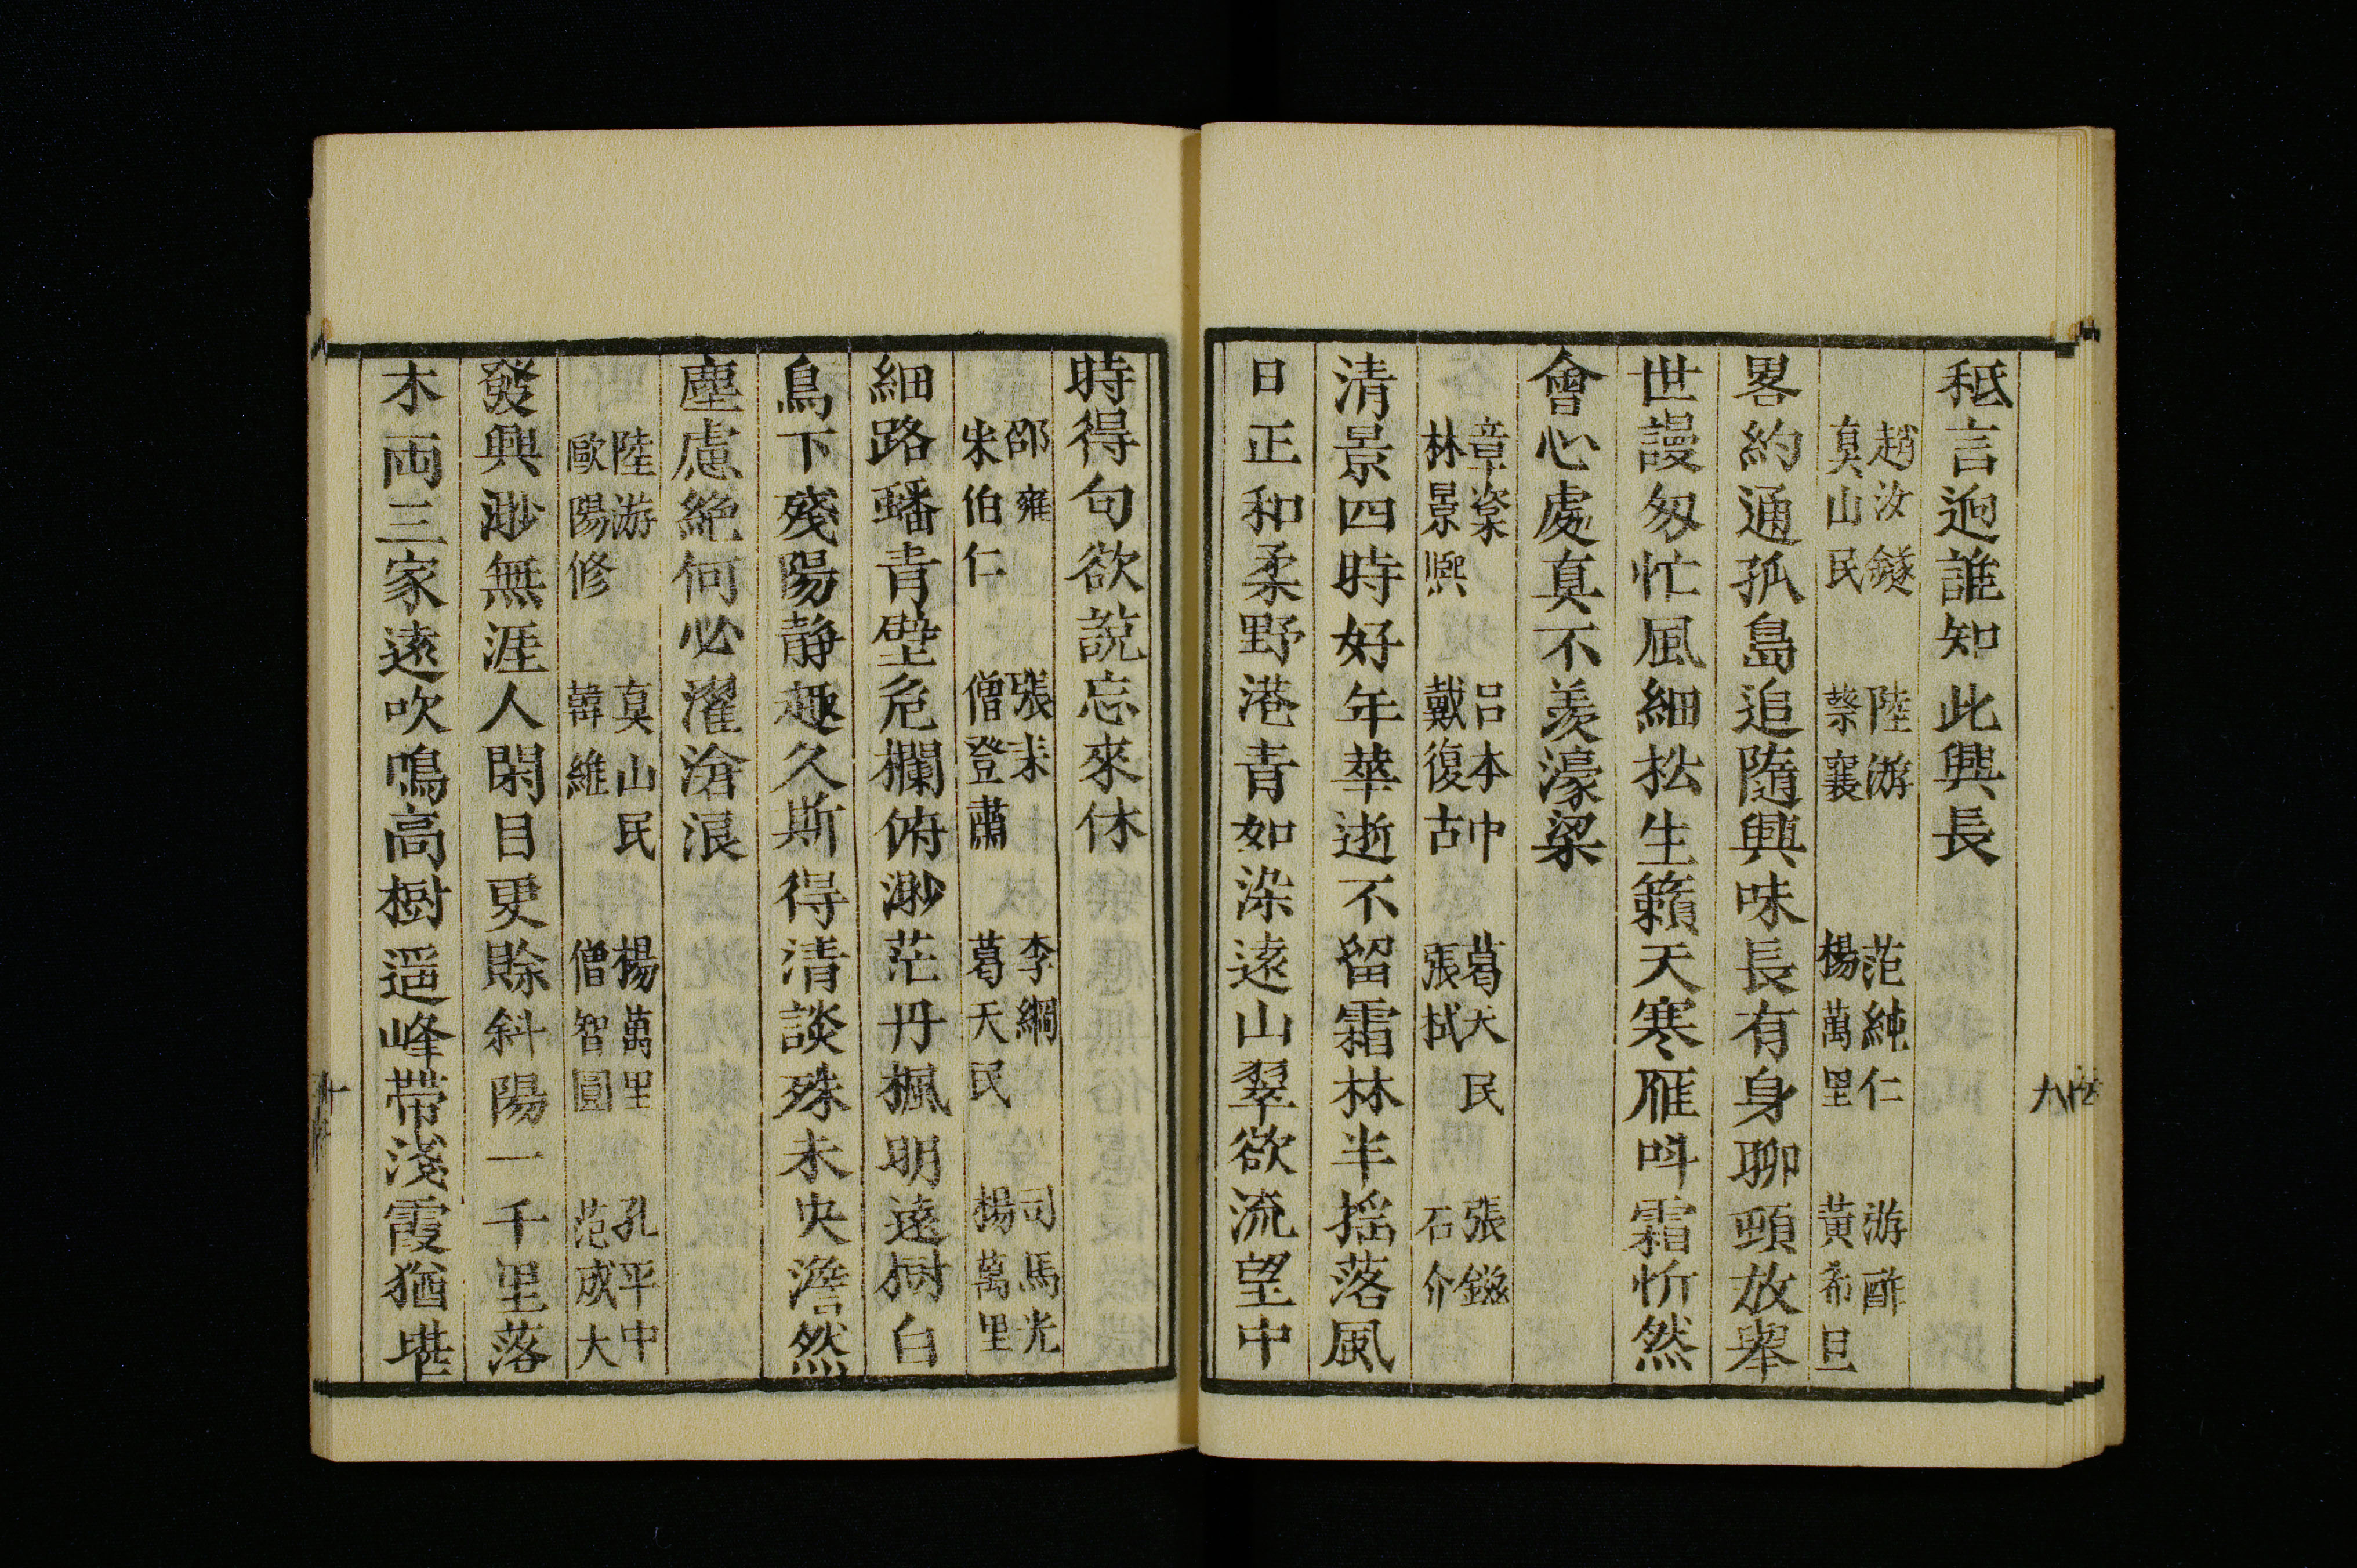 秪言逈誰知此興長
趙汝鐩　陸游　范純仁　游酢
真山民　蔡襄　楊萬里　黃希旦
畧約通孤島追隨興味長有身聊頭放舉
世謾匆忙風細松生籟天寒雁呌霜忻然
會心處真不羨濠梁
章楶　呂本中　葛天民　張鎡
林景熈　戴復古　張栻　石介
清景四時好年華逝不留霜林半揺落風
日正和柔野港青如染遠山翠欲流望中
時得句欲說忘來休
邵雍　張耒　李綱　司馬光
朱伯仁　僧登蕭　葛天民　楊萬里
細路蟠青壁危欄俯渺茫丹楓明遠樹白
鳥下殘陽静趣久斯得清談殊未央澹然
塵慮絶何必濯滄浪
陸游　真山民　楊萬里　孔平中
歐陽修　韓維　僧智圓　范成大
發興渺無涯人閑目更賖斜陽一千里落
木両三家逺吹鳴高樹遥峰帯淺霞猶堪